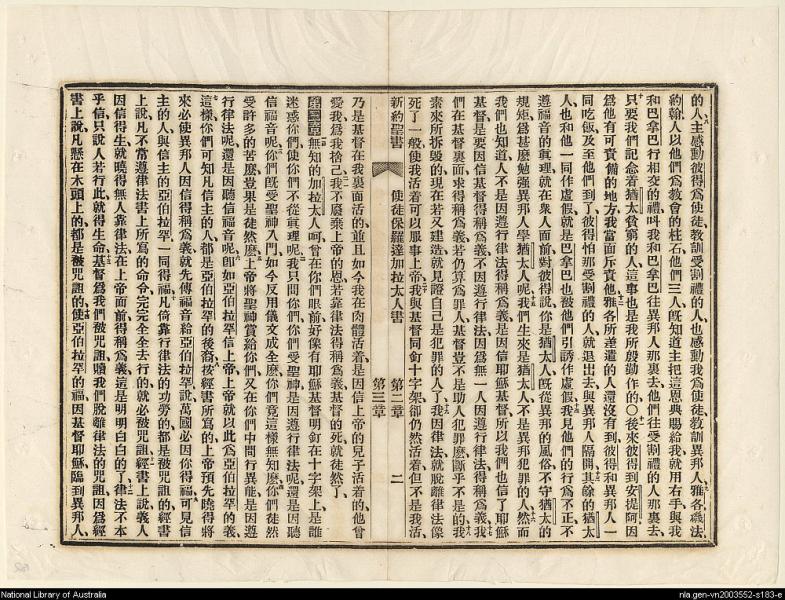 的人主感動彼得爲使徒教訓受割禮的人也感動我爲使徒教訓異邦人雅各磯法
約翰人以他們爲教會的柱石他們三人旣知道主把這恩典賜給我就用右手與我
和巴拿巴行相交的禮呌我和巴拿巴往異邦人那裏去他們往受割禮的人那裏去
只要我們記念着猶太貧窮的人這事也是我所殷勤作的〇後來彼得到安提阿因
爲他有可責備的地方我當面斥責他雅各所差遣的人還沒有到彼得和異邦人一
同吃飯及至他們到了彼得怕那受割禮的人就退出去與異邦人隔開其餘的猶太
人也和他一同作虛假就是巴拿巴也被他們引誘作虛假我見他們的行爲不正不
遵福音的眞理就在衆人面前對彼得說你是猶太人旣從異邦的風俗不守猶太的
規矩爲甚麽勉强異邦人學猶太人呢我們生來是猶太人不是異邦犯罪的人然而
我們也知道人不是因遵行律法得稱爲義是因信耶穌基督所以我們也信了耶穌
基督是要因信基督得稱爲義不因遵行律法因爲無一人因遵行律法得稱爲義我
們在基督裏面求得稱爲義若仍算爲罪人基督豈不是助人犯罪麽斷乎不是的我
素來所拆毀的現在若又建造就見證自己是犯罪的人了我因律法就脫離律法像
死了一般使我活着可以服事上帝我與基督同釘十字架卻仍然活着但不是我活
新約聖書 使徒保羅達加拉太人書 第二章 二
第三章
乃是基督在我裏面活的並且如今我在肉體活着是因信上帝的兒子活着的他曾
愛我爲我捨己我不廢棄上帝的恩若靠律法得稱爲義基督的死就徒然了
第三章無知的加拉太人呵曾在你們眼前好像有耶穌基督明釘在十字架上是誰
迷惑你們使你們不從眞理呢我只問你們你們受聖神是因遵行律法呢還是因聽
信福音呢你們旣受聖神入門如今反用儀文成全麽你們竟這樣無知麽你們徒然
受許多的苦麽豈果是徒然麽上帝將聖神賞給你們又在你們中間行異能是因遵
行律法呢還是因聽信福音呢卽如亞伯拉罕信上帝上帝就以此爲亞伯拉罕的義
這樣你們可知凡信主的人都是亞伯拉罕的後裔按經書所寫的上帝預先曉得將
來必使異邦人因信得稱爲義就先傳福音給亞伯拉罕說萬國必因你得福可見信
主的人與信主的亞伯拉罕一同得福凡倚靠行律法的功勞的都是被咒詛的經書
上說凡不常遵律法書上所寫的命令完完全全去行的就必被咒詛經書上說義人
因信得生就曉得無人靠律法在上帝面前得稱爲義這是明明白白的了律法不本
乎信只說人若行此就得生命基督爲我們被咒詛贖我們脫離律法的咒詛因爲經
書上說凡懸在木頭上的都是被咒詛的使亞伯拉罕的福因基督耶穌臨到異邦人
National Library of Australia
nla.gen-vn2003552-s183-e